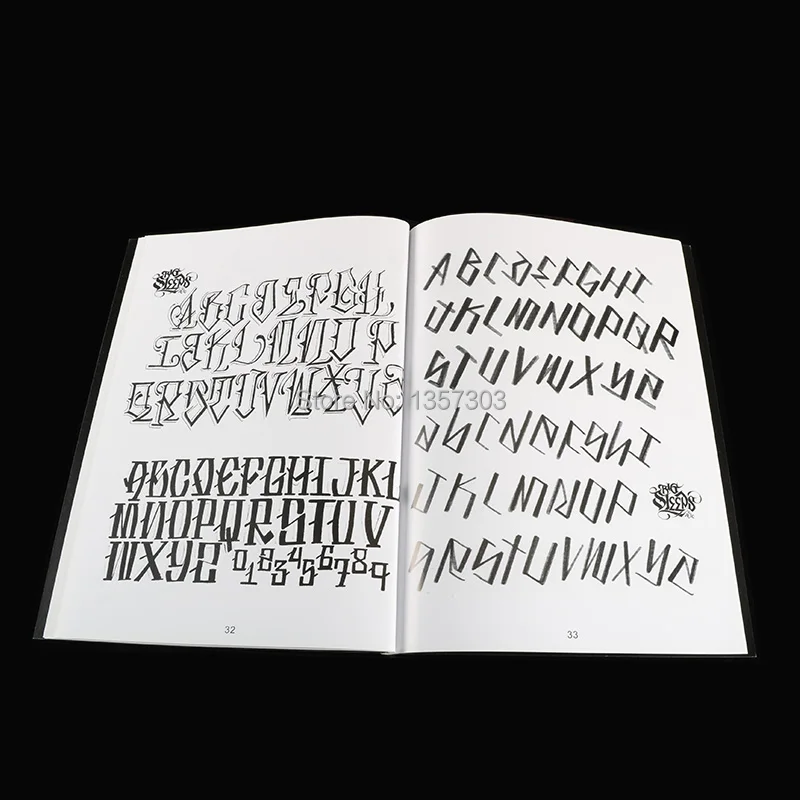 BIG
SLEEPS
ABCDEFGH
IJKLMNOP
QRSTUVWXYZ
ABCDEFGHIJKL
MNOPQRSTUV
WXYZ 0123456789
32
ABCDEFGHI
JKLMNOPQR
STUVWXYZ
abcdefghi
JKLMNOP
BIG
SLEEPS
QRSTUVWXYZ
33
Store No:1357303